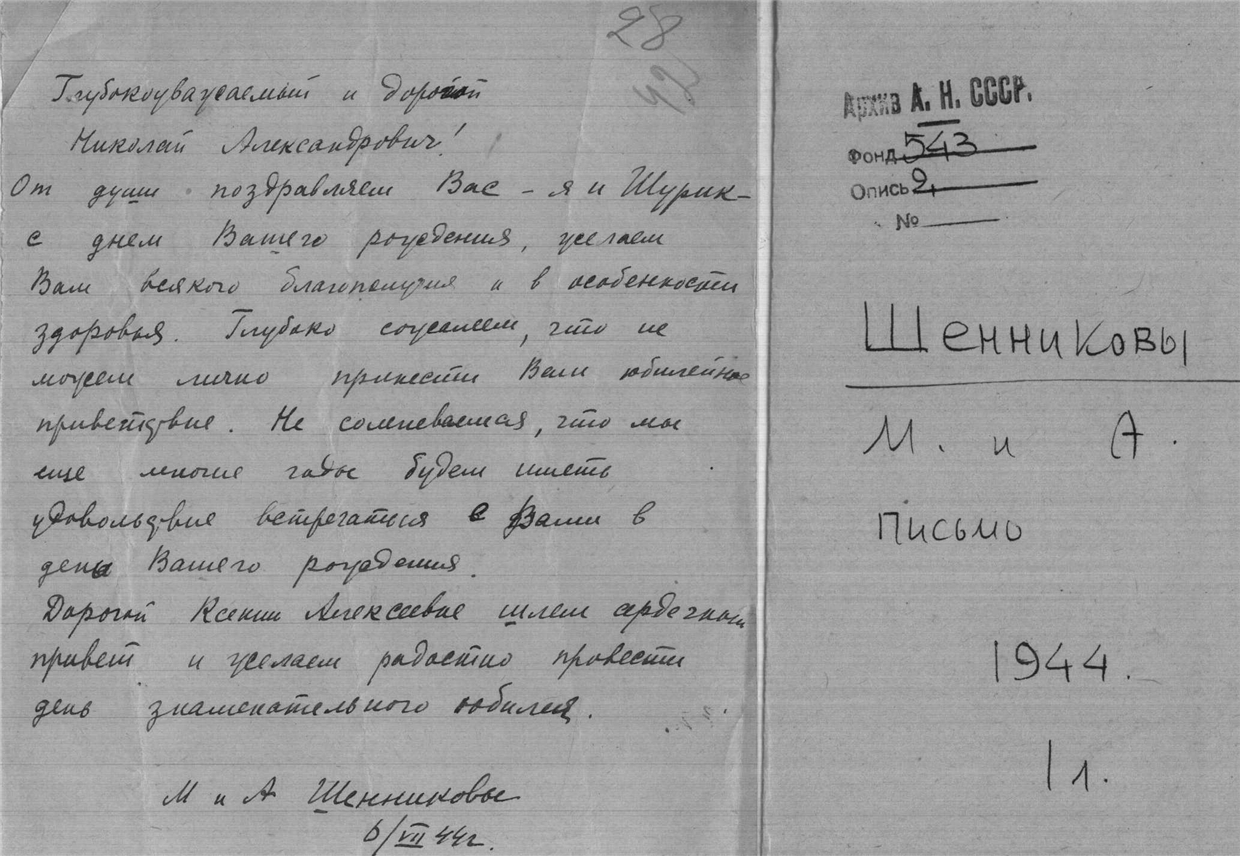 28
42
Глубокоуважаемый и дорогой
Николай Александрович!
От души поздравляем Вас – я и Шурик –
с днем Вашего рождения, желаем
Вам всякого благополучия и в особенности
здоровья. Глубоко сожалеем, что не
можем лично принести Вам юбилейное
приветствие. Не сомневаемся, что мы
еще многие годы будем иметь
удовольствие встречаться с Вами в
день Вашего рождения.
Дорогой Ксении Алексеевне шлем сердечный
привет и желаем радостно провести
день знаменательного юбилея.
М и А Шенниковы
6/VII 44г.
Архив А. Н. СССР.
Фонд 543
Опись 2,
№
Шенниковы
М. и А.
письмо
1944.
1 л.